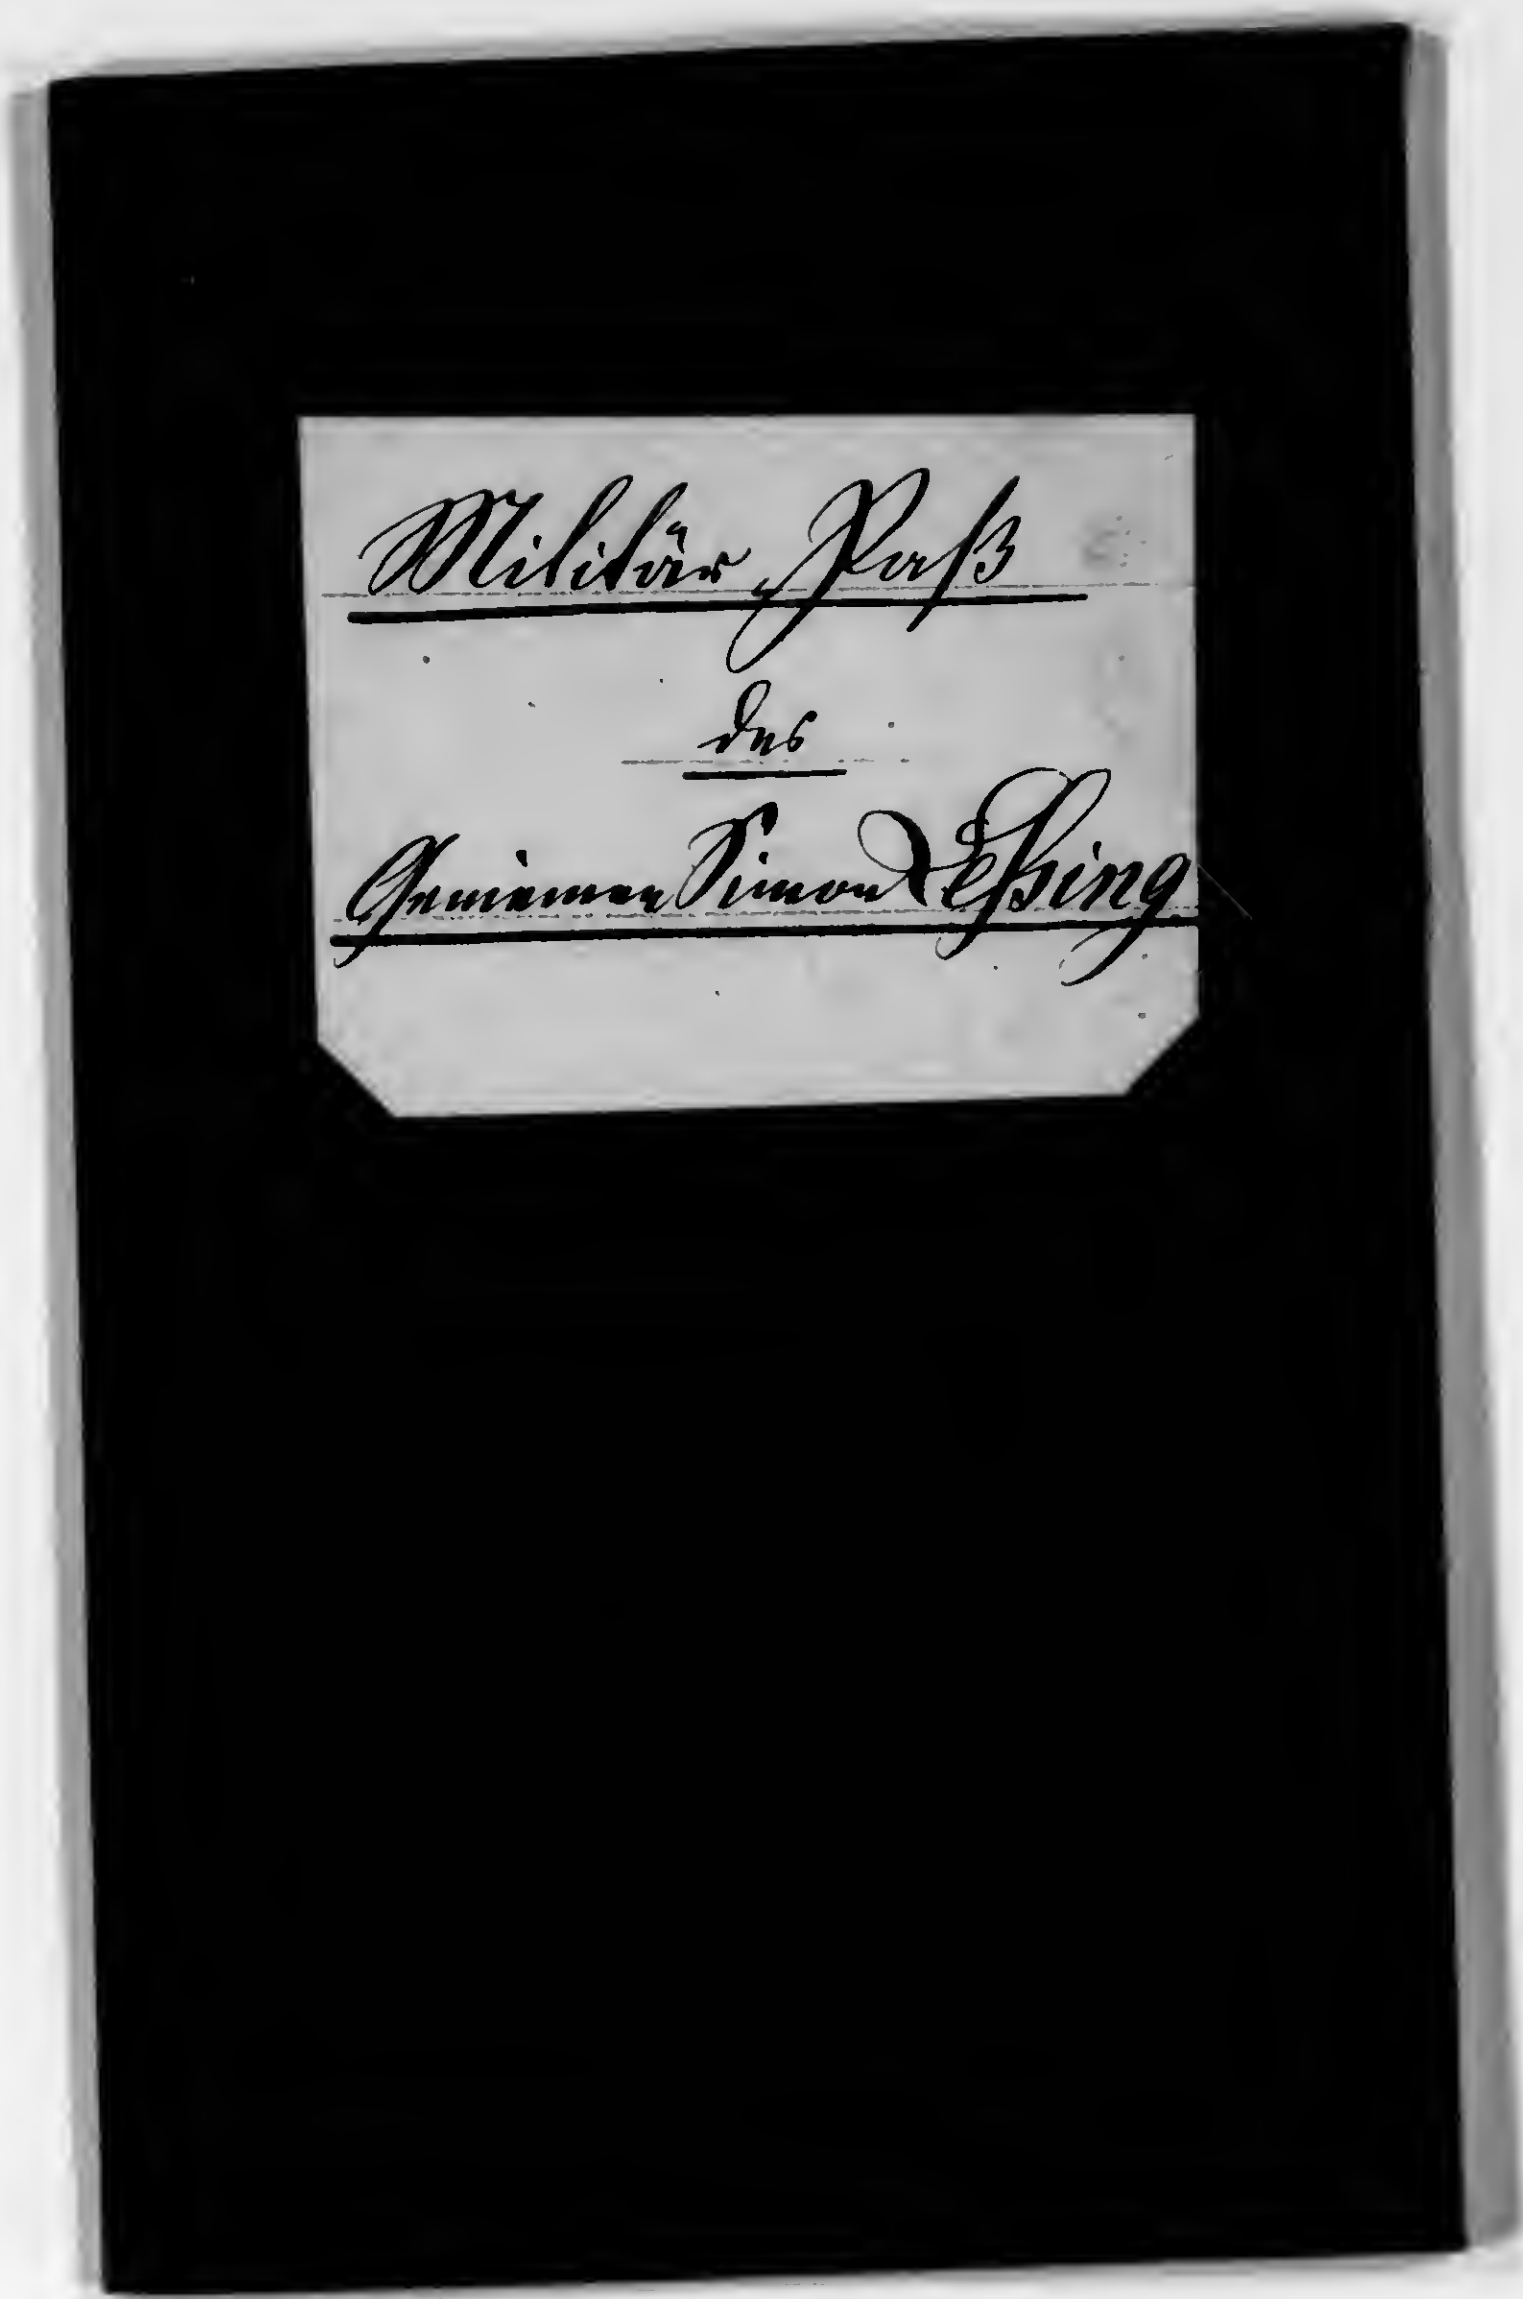 Militär-Paß
des
Gemeinen Simon Leßing